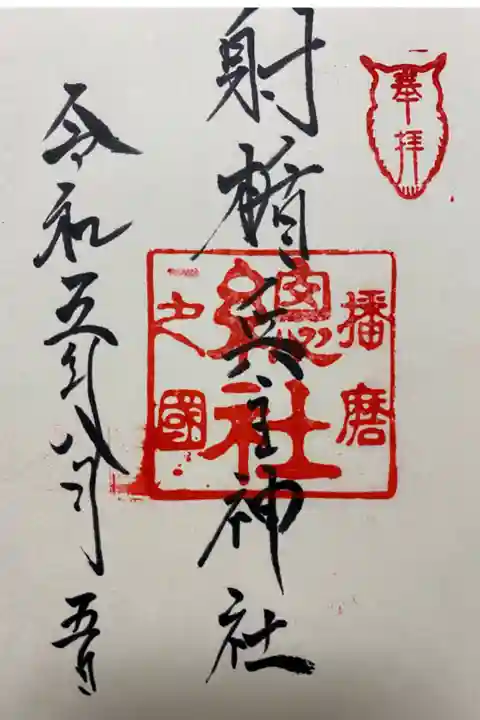 奉拝
射楯兵主神社
播磨
總社
之國
令和五年八月五日